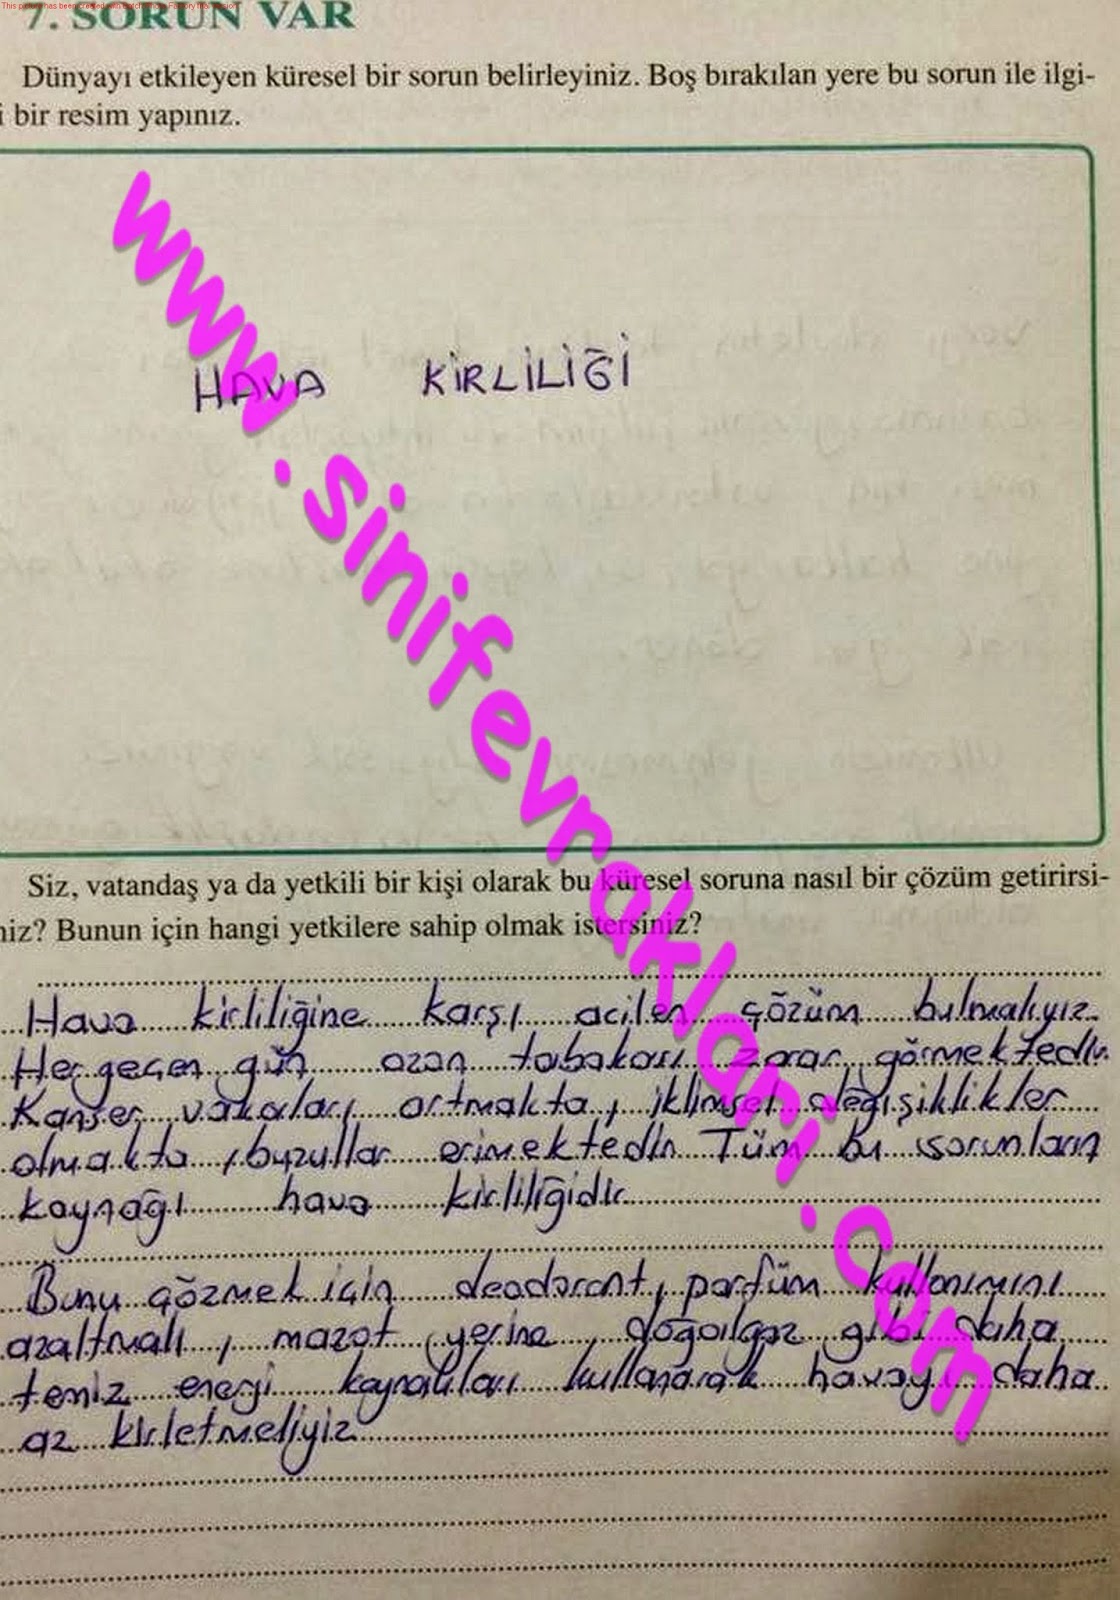 This picture has been created with BatchPhoto Factory trial version
7. SORUN VAR
Dünyayı etkileyen küresel bir sorun belirleyiniz. Boş bırakılan yere bu sorun ile ilgi-
i bir resim yapınız.
HAVA KİRLİLİĞİ
www.sinifevraklari.com
Siz, vatandaş ya da yetkili bir kişi olarak bu küresel soruna nasıl bir çözüm getirirsi-
niz? Bunun için hangi yetkilere sahip olmak istersiniz?
Hava kirliliğine karşı acilen çözüm bulmalıyız.
Her geçen gün ozon tabakası zarar görmektedir.
Kanser vakaları artmakta, iklimsel değişiklikler
olmakta, buzullar erimektedir. Tüm bu sorunların
kaynağı hava kirliliğidir.
Bunu çözmek için deodorant, parfüm kullanımını
azaltmalı, mazot yerine doğalgaz gibi daha
temiz energi kaynakları kullanarak havayı daha
az kirletmeliyiz